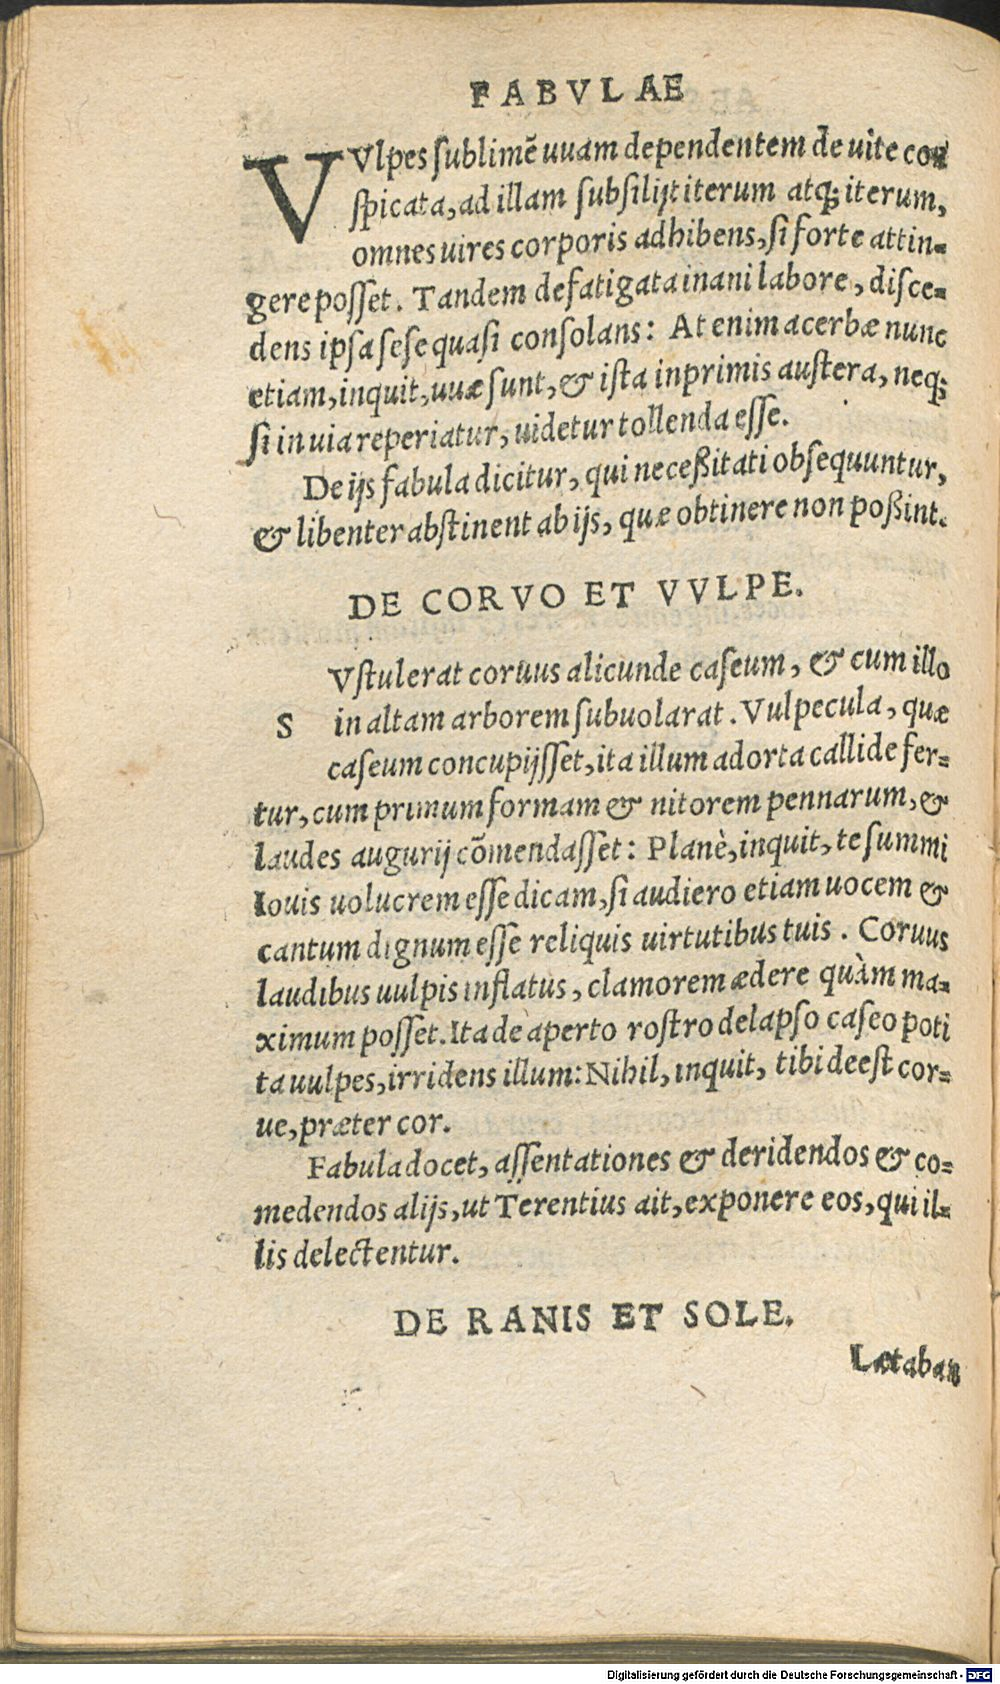 FABVLAE
VVlpes sublimē uuam dependentem de uite con
spicata, ad illam subsilijt iterum atq; iterum,
omnes uires corporis adhibens, si forte attin=
gere posset. Tandem defatigata inani labore, disce=
dens ipsa sese quasi consolans: At enim acerbæ nunc
etiam, inquit, uuæ sunt, & ista inprimis austera, neq;
si in uia reperiatur, uidetur tollenda esse.
De ijs fabula dicitur, qui neceßitati obsequuntur,
& libenter abstinent ab ijs, quæ obtinere non poßint.
DE CORVO ET VVLPE.
SVstulerat coruus alicunde caseum, & cum illo
in altam arborem subuolarat. Vulpecula, quæ
caseum concupijsset, ita illum adorta callide fer=
tur, cum primum formam & nitorem pennarum, &
laudes augurij cōmendasset: Planè, inquit, te summi
Iouis uolucrem esse dicam, si audiero etiam uocem &
cantum dignum esse reliquis uirtutibus tuis. Coruus
laudibus uulpis inflatus, clamorem ædere quàm ma=
ximum posset. Ita de aperto rostro delapso caseo poti
ta uulpes, irridens illum: Nihil, inquit, tibi deest cor=
ue, præter cor.
Fabula docet, assentationes & deridendos & co=
medendos alijs, ut Terentius ait, exponere eos, qui il=
lis delectentur.
DE RANIS ET SOLE.
Lætaban
Digitalisierung gefördert durch die Deutsche Forschungsgemeinschaft - DFG